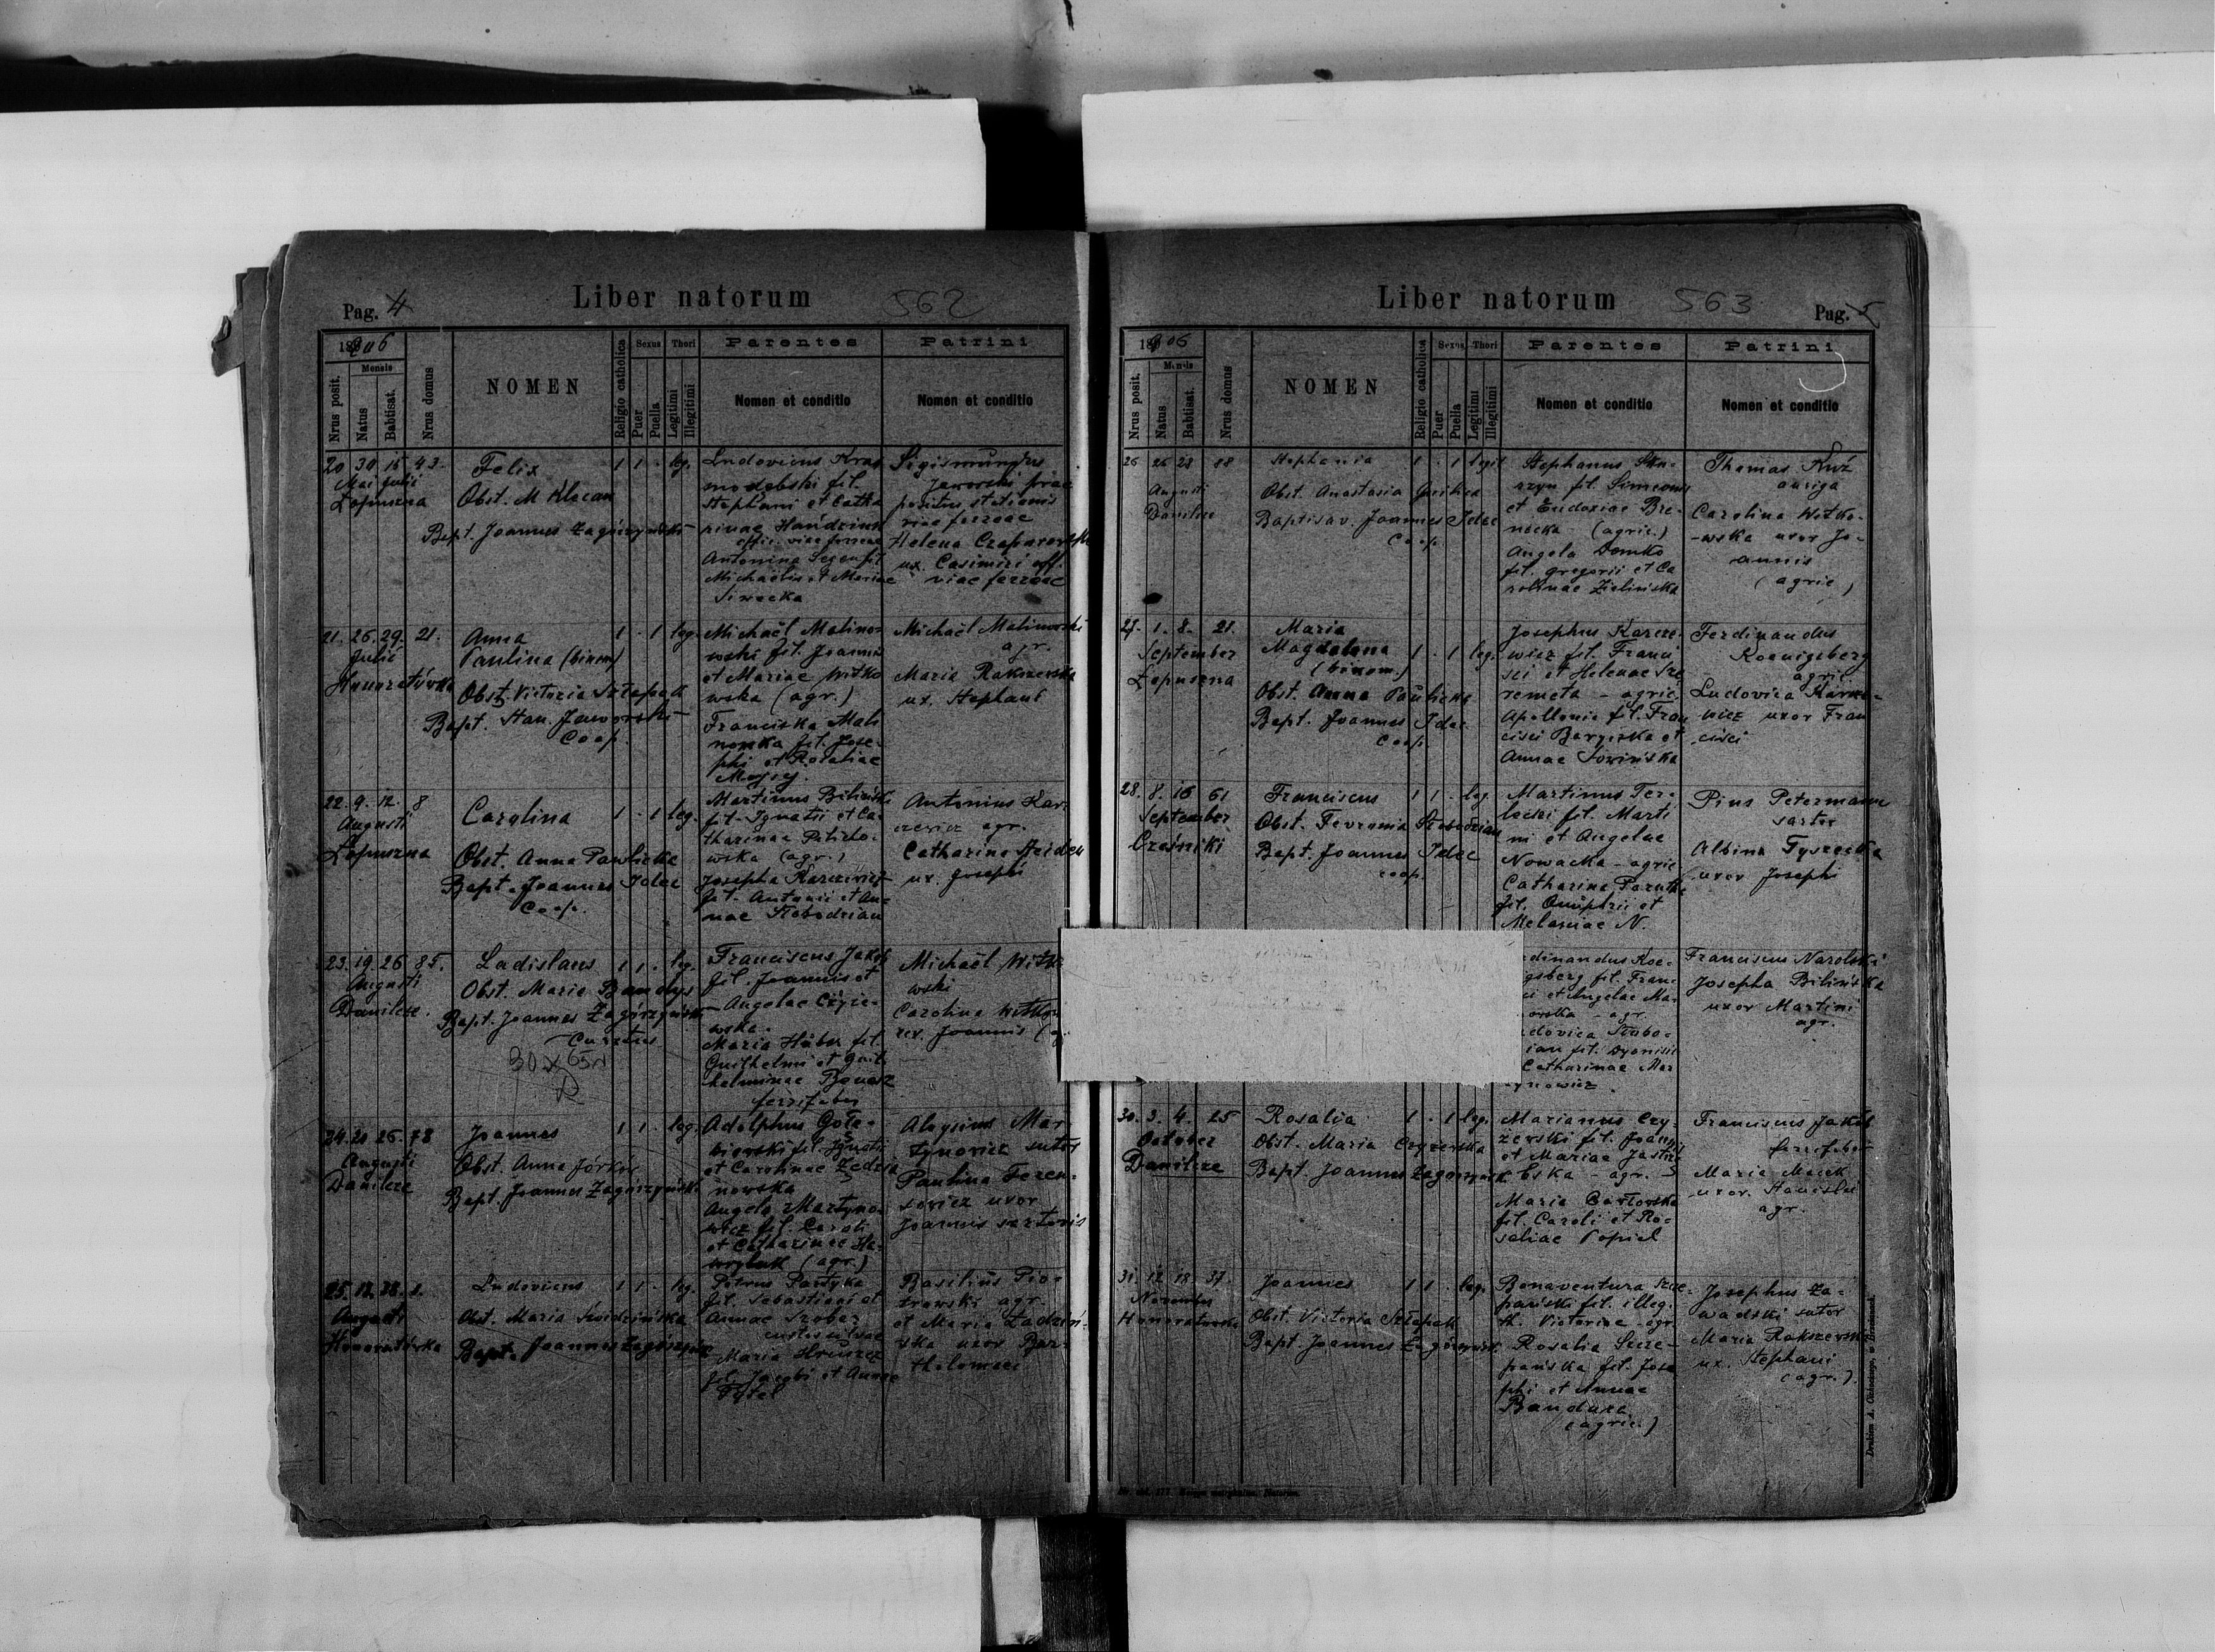 Pag. 4
Liber natorum
562
1906
Nrus posit.
Mensis
Natus
Babtisat.
Nrus domus
NOMEN
Religio catholica
Sexus
Puer
Puella
Thori
Legitimi
Illegitimi
Parentes
Nomen et conditio
Patrini
Nomen et conditio
20 30 15 43.
Mai Julii
Łopuszna
Felix
Obst. M Klecan
Bept. Joannes Zagórzyński
1 1 . leg.
Ludovicus Kras
nodębski fil.
Stephani et Catha
rinae
offic. viae ferreae
Antonina fil.
Michaëlis et Mariae
Siwecka
Sigismundus
Jaworski prae
positus stationis
viae ferreae
Helena
ux. Casimiri off.
viae ferreae
21. 26. 29. 21.
Julii
Honoratówka
Anna
Paulina (binom)
Obst. Victoria Szłapak
Bapt. Stan. Jaworski
Coop.
1 . 1 leg.
Michaël Malino-
wski fil. Joannis
et Mariae Witko
wska (agr.)
Franciska Mali
nowska fil. Jose-
phi et Rosaliae
Michaël Malinowski
agr.
Maria Rakszewska
ux. Stephani
22. 9. 12. 8
Augusti
Łopuszna
Carolina
Obst. Anna Pawlicka
Bapt. Joannes Idec
Coop.
1 . 1 leg.
Martinus Biliński
fil. Ignatii et Ca-
tharinae
wska (agr.)
Josepha Karczewicz
fil. Antonii et An-
nae Słobodzian
Antonius Kar-
czewicz agr.
Catharina
ux. Josephi
23. 19. 26 85.
Augusti
Danilcze.
Ladislaus
Obst. Maria Bandys
Bapt. Joannes Zagórzyński
Curatus
1 1 . leg.
Franciscus Jakób
fil. Joannis et
Angelae
wska.
Maria Huber fil.
Guilhelmi et Guil-
helminae
ferrifaber
Michaël Witko
wski
Carolina Witko
uxor. Joannis
24. 20 26. 78
Augusti
Danilcze
Joannes
Obst. Anna
Bapt. Joannes Zagórzyński
1 1 . leg.
Adolphus Gołę-
biowski fil. Ignatii
et Carolinae
nowska
Angela Martyno-
wicz fil. Caroli
et Catharinae Ha-
(agr.)
Aloysius Mar-
tynowicz sutor
Paulina Teren-
towicz uxor
Joannis sartoris
25. 12. 28. 1.
Augusti
Honoratówka
Ludovicus
Obst. Maria
Bapt. Joannes Zagórzyński
1 1 . leg.
Petrus Partyka
fil. Sebastiani et
Annae Szober
custos silvae
Maria
fil. Jacobi et Annae
Basilius Pio-
trowski agr.
et Maria
ska uxor Bar-
tholomaei
Liber natorum
563
Pag. 5
1906
Nrus posit.
Mensis
Natus
Babtisat.
Nrus domus
NOMEN
Religio catholica
Sexus
Puer
Puella
Thori
Legitimi
Illegitimi
Parentes
Nomen et conditio
Patrini
Nomen et conditio
26 26 28 88
Augusti
Danilcze
Stephania
Obst. Anastasia
Baptisav. Joannes Idec
Coop.
1 . 1 legit
Stephanus
fil. Simeonis
et Eudoxiae
(agric.)
Angela Demko
fil. Gregorii et Ca
rolinae Zielińska
Thomas Kuź
auriga
Carolina Witko-
-wska uxor Jo-
annis
(agric)
27. 1. 8. 21.
September
Łopuszna
Maria
Magdalena
(binom.)
Obst. Anna Pawlicka
Bapt. Joannes Idec
Coop.
1 . 1 leg.
Josephus Karcze-
wicz fil. Franci
sci et Helenae Sze
remeta - agric.
Apollonia fil. Fran
cisci et
Annae
Ferdinandus
Koenigsberg
agric.
Ludovica Karcze-
wicz uxor Fran
cisci
28. 8. 16 61
September
Cześniki
Franciscus
Obst. Fevronia Słobodzian
Bapt. Joannes Idec
coop.
1 1 . leg.
Martinus Ter-
lecki fil. Marti
ni et Angelae
Nowacka - agric
Catharina
fil. Onuphrii et
Melaniae N.
Pius Petermann
sartor
Albina Tyszecka
uxor Josephi
dinandus Koe-
igsberg fil. Fran-
ci et Angelae Ma-
- agr.
dovica Słobo-
ian fil. Dyonisii
Catharinae Mar
tynowicz.
Franciscus Narolski
Josepha Bilińska
uxor Martini
agr.
30. 3. 4. 25
October
Danilcze
Rosalia
Obst. Maria Czyżewska
Bapt. Joannes Zagórzyński
1 . 1 leg.
Marianus Czy-
żewski fil. Joannis
et Mariae Jastrzę
bska - agr. -
Maria
fil. Caroli et Ro-
saliae Popiel
Franciscus Jakób
ferrifaber
Maria Macek
uxor. Stanislai
agr.
31. 12 18. 37.
November
Honoratówka
Joannes
Obst. Victoria Szłapak
Bapt. Joannes Zagórzyński
1 1 . leg.
Bonaventura Szcze-
pański fil. illeg.
Victoriae - agr.
Rosalia Szcze-
pańska fil. Jose
phi et Annae
Bandura
(agric.)
Josephus Za-
wadzki sutor
Maria Rakszewska
ux. Stephani
(agr.)